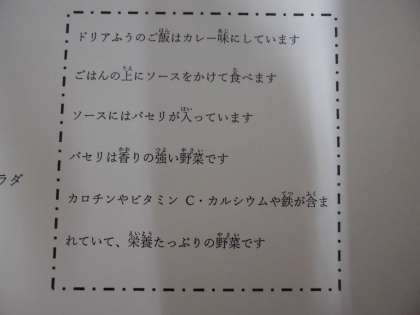 ドリアふうのご飯はカレー味にしています
ごはんの上にソースをかけて食べます
ソースにはパセリが入っています
パセリは香りの強い野菜です
カロチンやビタミン C・カルシウムや鉄が含ま
れていて、栄養たっぷりの野菜です
ラダ